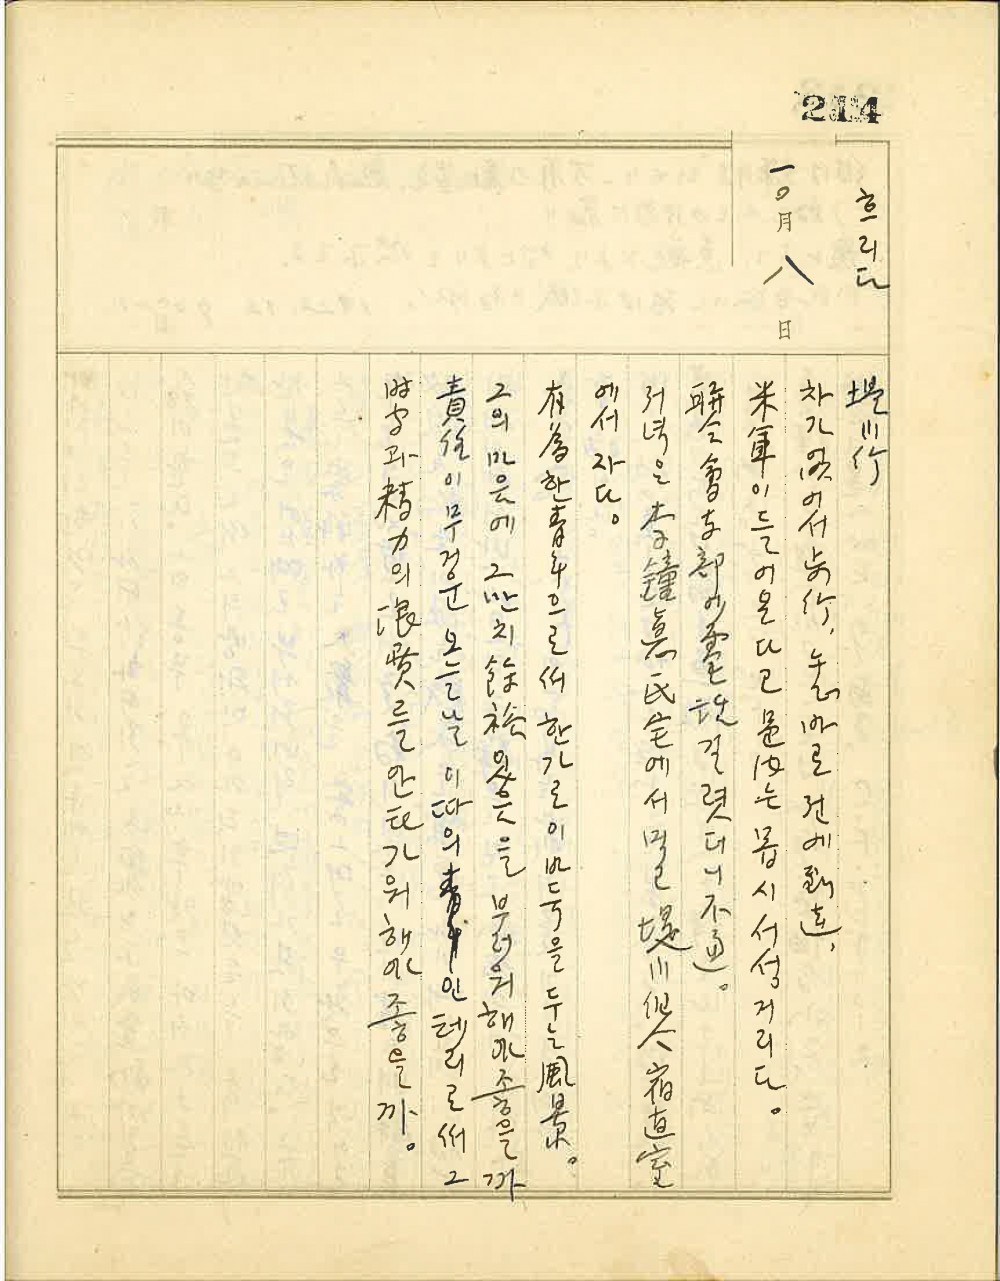 214
흐리다
一〇月 八 日
堤川行
차가 없어서 步行, 눌러바로 전에 到達,
米軍이 들어온다고 邑內는 몹시 서성거리다。
聯合會支部에 電話 걸렷더니 不通。
저녁은 李鐘熹氏宅에서 먹고 堤川 個人 宿直室
에서 자다。
有爲한 靑年으로써 한가로이 바둑을 두는 風景。
그의 마음에 그만치 餘裕있음을 부러워해야 좋을까
責任이 무거운 오늘날 이따의 靑年인테리로써 그
時字과 精力의 浪費를 안타가워해야 좋을까。